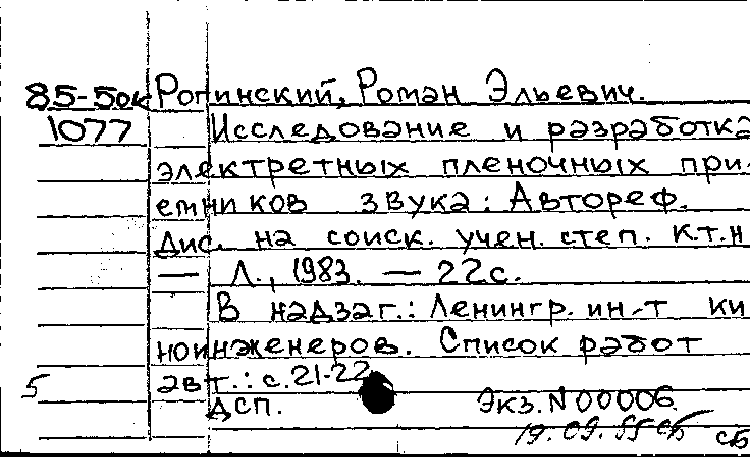 85-5ок Ропинский, Роман Эльевич.
1077 Исследование и разработка
электретных пленочных при-
емников звука: Автореф.
Дис. на соиск. учен. степ. к.т.н
— Л., 1983. — 22с.
В надзаг.: Ленингр. ин-т ки
ноинженеров. Список работ
5 авт.: с.21-22
ДСП. Экз. N 00006.
19.09. сб